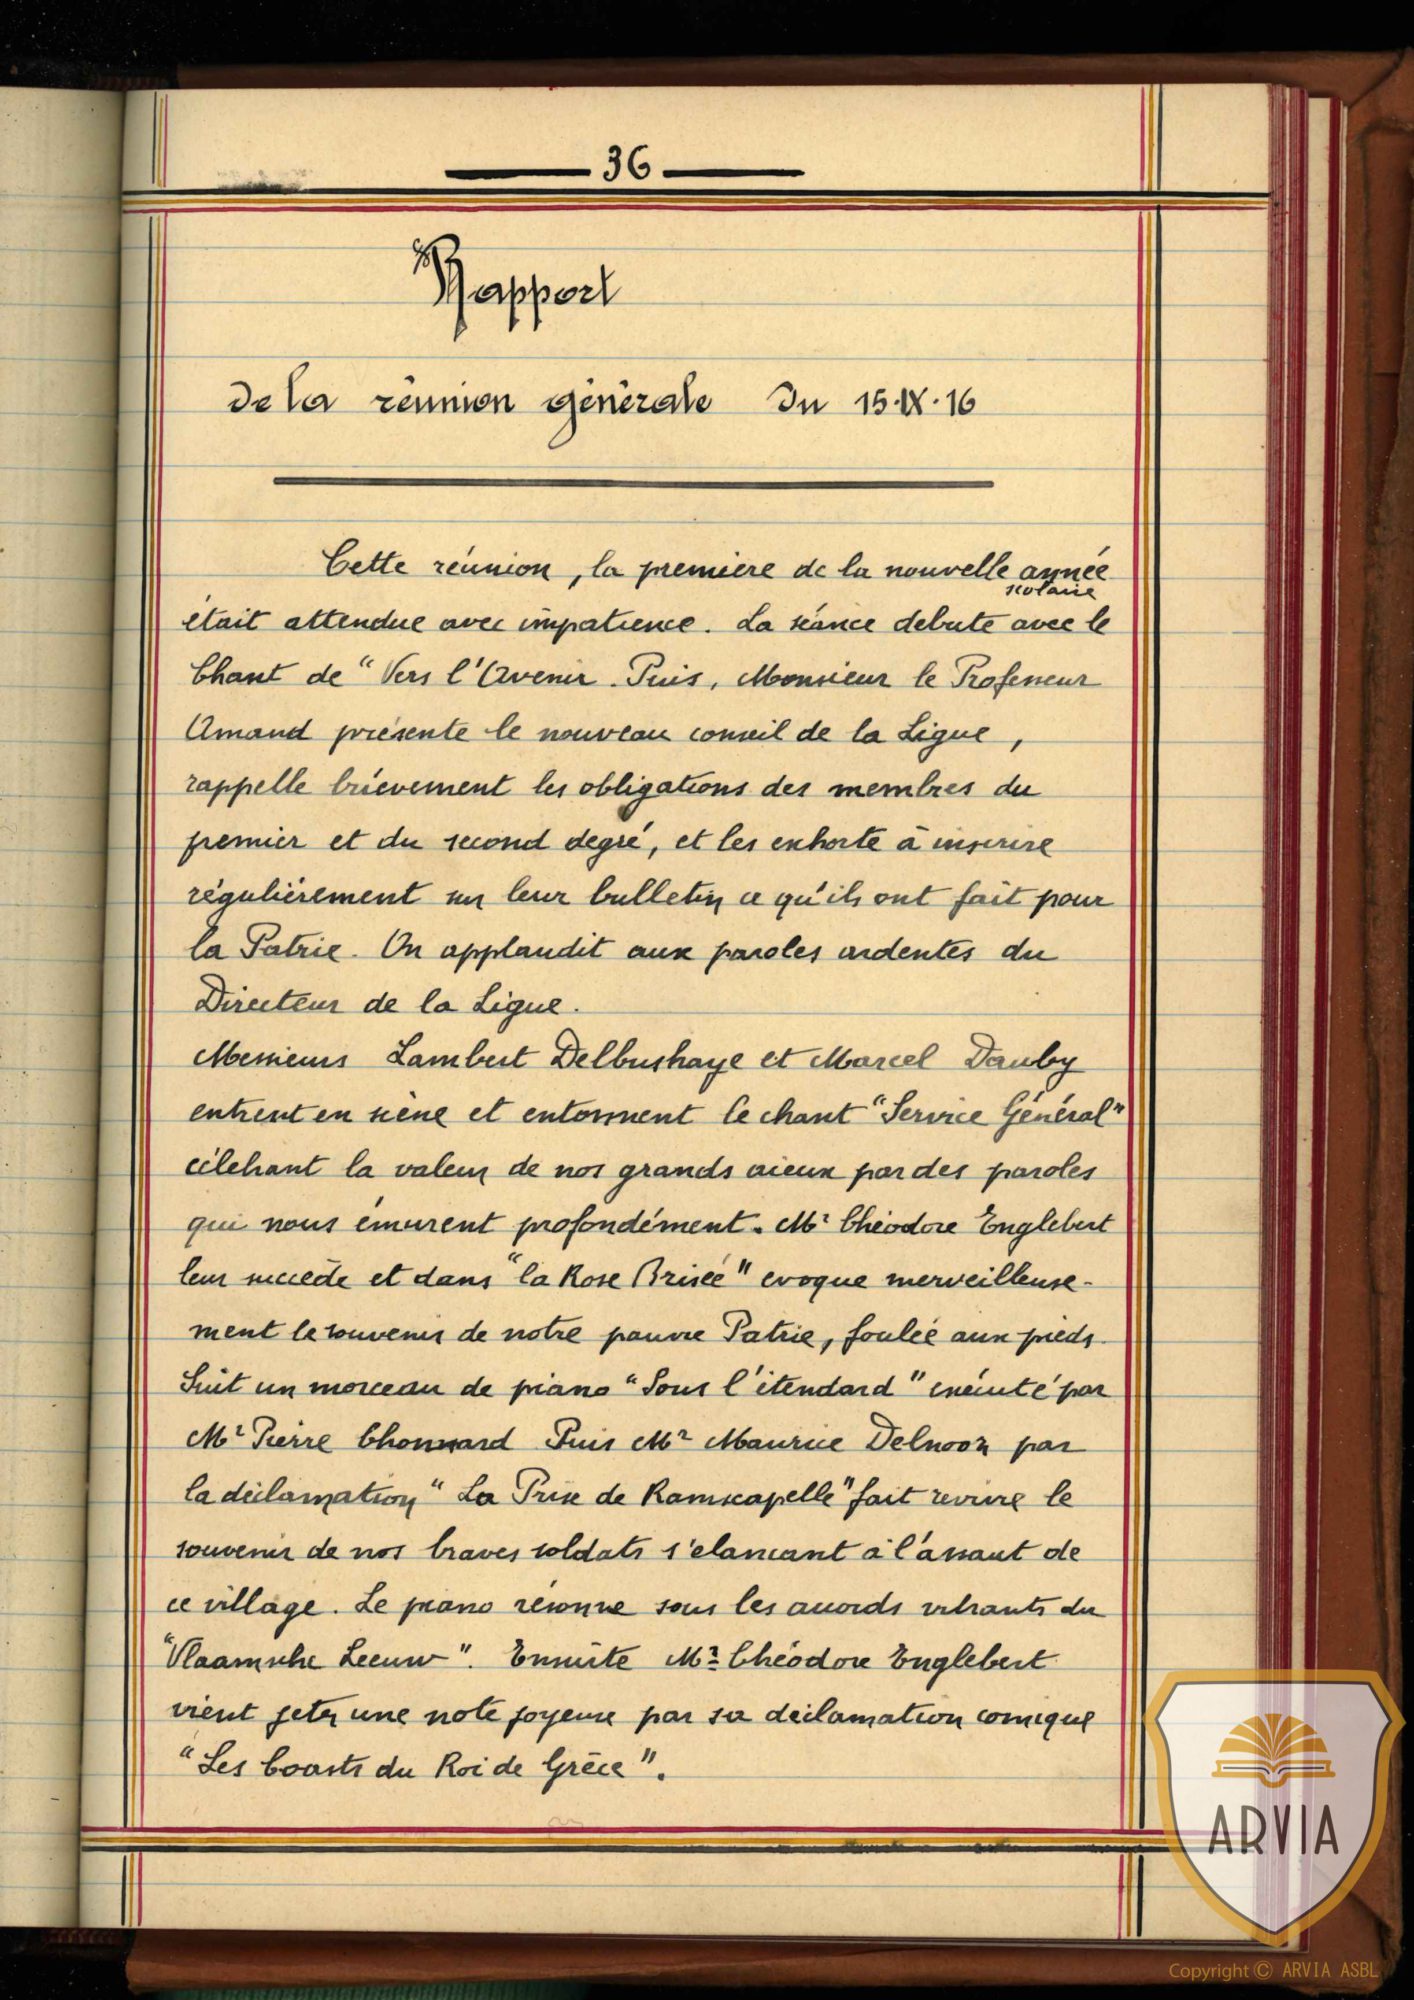 36
Rapport
de la réunion générale du 15·IX·16
Cette réunion, la première de la nouvelle année
scolaire
était attendue avec impatience. La séance débute avec le
Chant de "Vers l'Avenir. Puis, Monsieur le Professeur
Amand présente le nouveau conseil de la Ligue,
rappelle brièvement les obligations des membres du
premier et du second degré, et les exhorte à inscrire
régulièrement sur leur bulletin ce qu'ils ont fait pour
la Patrie. On applaudit aux paroles ardentes du
Directeur de la Ligue.
Messieurs Lambert Delbushaye et Marcel Dauby
entrent en scène et entonnent le chant "Service Général"
célébrant la valeur de nos grands aieux par des paroles
qui nous émurent profondément. Mr Théodore Englebert
leur succède et dans "la Rose Brisée" evoque merveilleuse-
ment le souvenir de notre pauvre Patrie, foulée aux pieds.
Suit un morceau de piano "Sous l'étendard" exécuté par
Mr Pierre Thonnard Puis Mr Maurice Delnooz par
la déclamation "La Prise de Ramscapelle" fait revivre le
souvenir de nos braves soldats s'elancant à l'assaut de
ce village. Le piano résonne sous les accords vibrants du
"Vlaamsche Leeuw". Ensuite Mr Théodore Englebert
vient jeter une note joyeuse par sa déclamation comique
"Les Toasts du Roi de Grèce".
ARVIA
Copyright © ARVIA ASBL